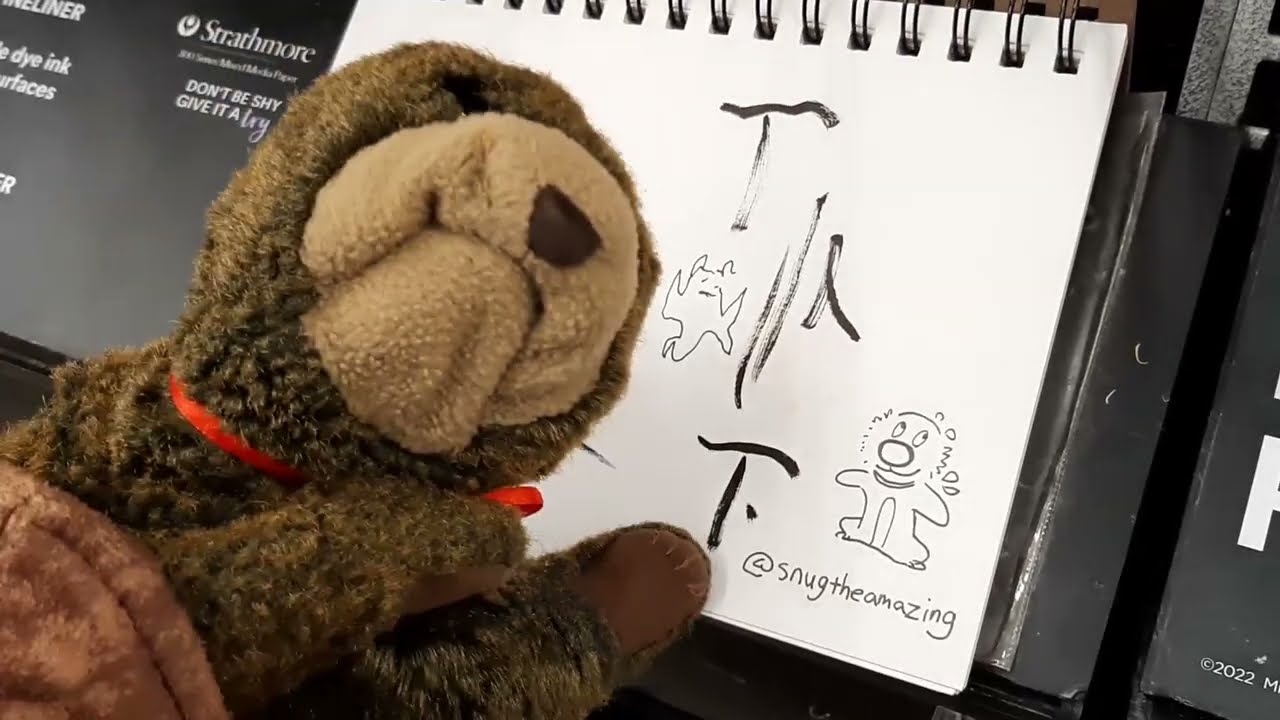 INELINER
e dye ink
urfaces
Strathmore
300 Series Mixed Media Paper
DON'T BE SHY
GIVE IT A try
下
@snugtheamazing
©2022